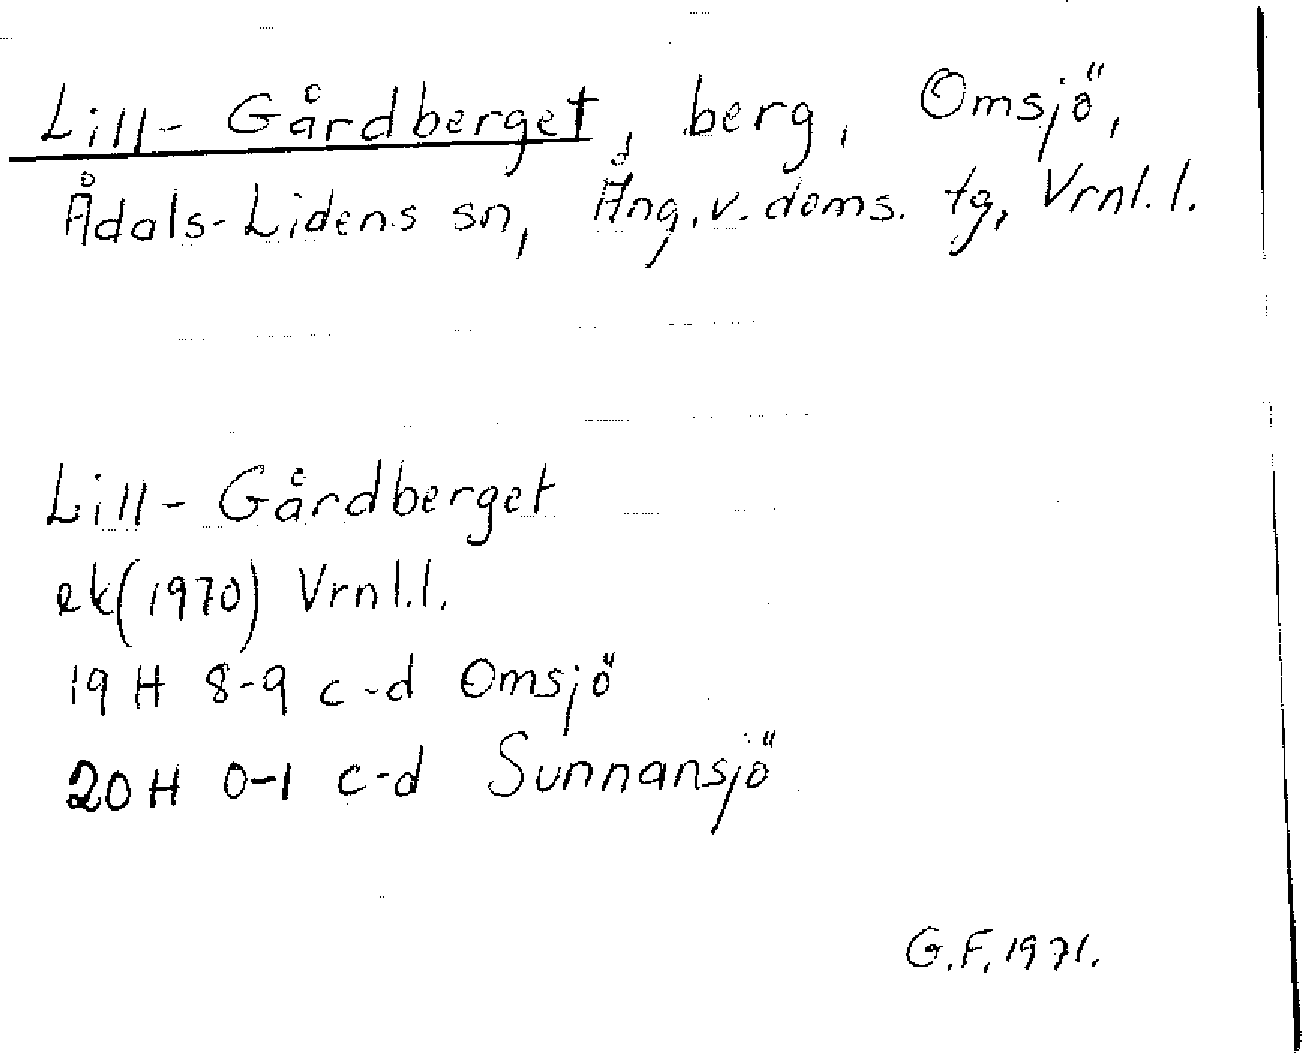 Lill-Gårdberget, berg, Omsjö,
Ådals-Lidens sn, Ång.v.doms. tg, Vrnl.l.
Lill-Gårdberget
ek(1970) Vrnl.l.
19 H 8-9 c-d Omsjö
20 H 0-1 c-d Sunnansjö
G.F. 1971.